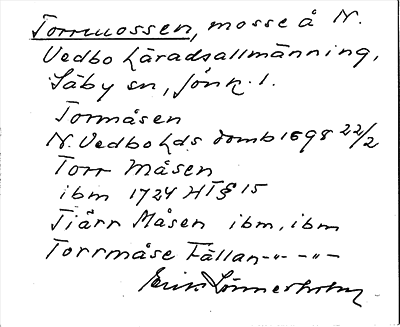 Torrmossen, mosse å N.
Vedbo häradsallmänning,
Säby sn, Jönk. l.
Tormåsen
N. Vedbo hds domb 1698 22/2
Torr Måsen
ibm 1724 HT § 15
Tiärr Måsen ibm, ibm
Torrmåse Fällan -"- -"-
Erik Lönnerholm